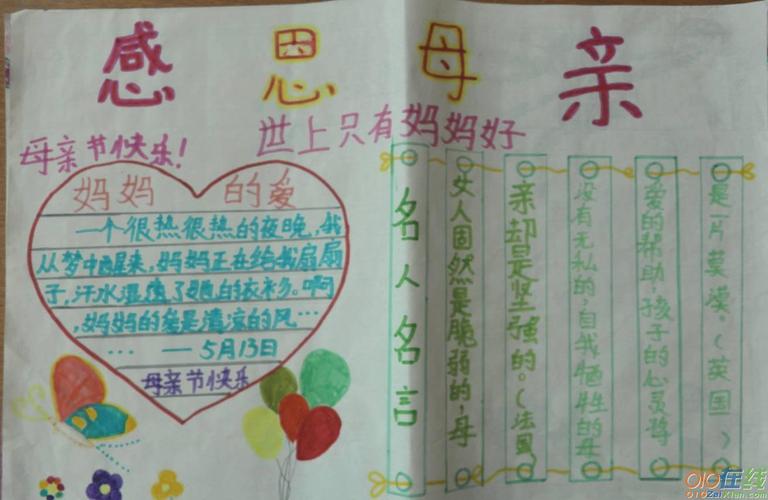 感恩母亲
世上只有妈妈好
母亲节快乐!
妈妈 的爱
一个很热很热的夜晚,我
从梦中醒来,妈妈正在给我扇扇
子,汗水湿透了她的衣衫。啊
,妈妈的爱是清凉的风…
… — 5月13日
母亲节快乐
名人名言
女人固然是脆弱的,母
亲却是坚强的。(法国)
没有无私的,自我牺牲的母
爱的帮助,孩子的心灵将
是一片荒漠。(英国 )
010在线
010zaixian.com